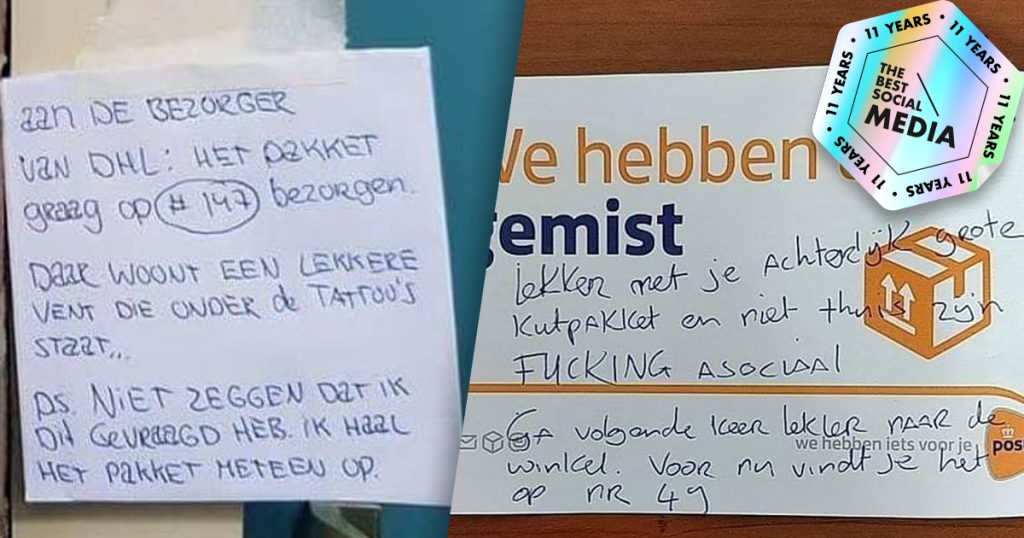 aan DE BEZORGER
van DHL: HET pakkeT
graag op #147 bezorgen.
Daar WOONT EEN LEKKERE
VENT DIE ONDER de TATTOU'S
STaaT...
ps. NiET ZEGGEN DaT iK
DiT GEVRAAGD HEB. iK HaaL
HET PAKKET METEEN OP.
We hebben
gemist
lekker met je achterlijk grote
kutpakket en niet thuis zijn
FUCKING ASOCIAAL
Ga volgende keer lekker naar de
we hebben iets voor je
pos
winkel. Voor nu vindt je het
op nr 49
11 YEARS • 11 YEARS • 11 YEARS • 11 YEARS • 11 YEARS • 11 YEARS •
THE
BEST
SOCIAL
MEDIA